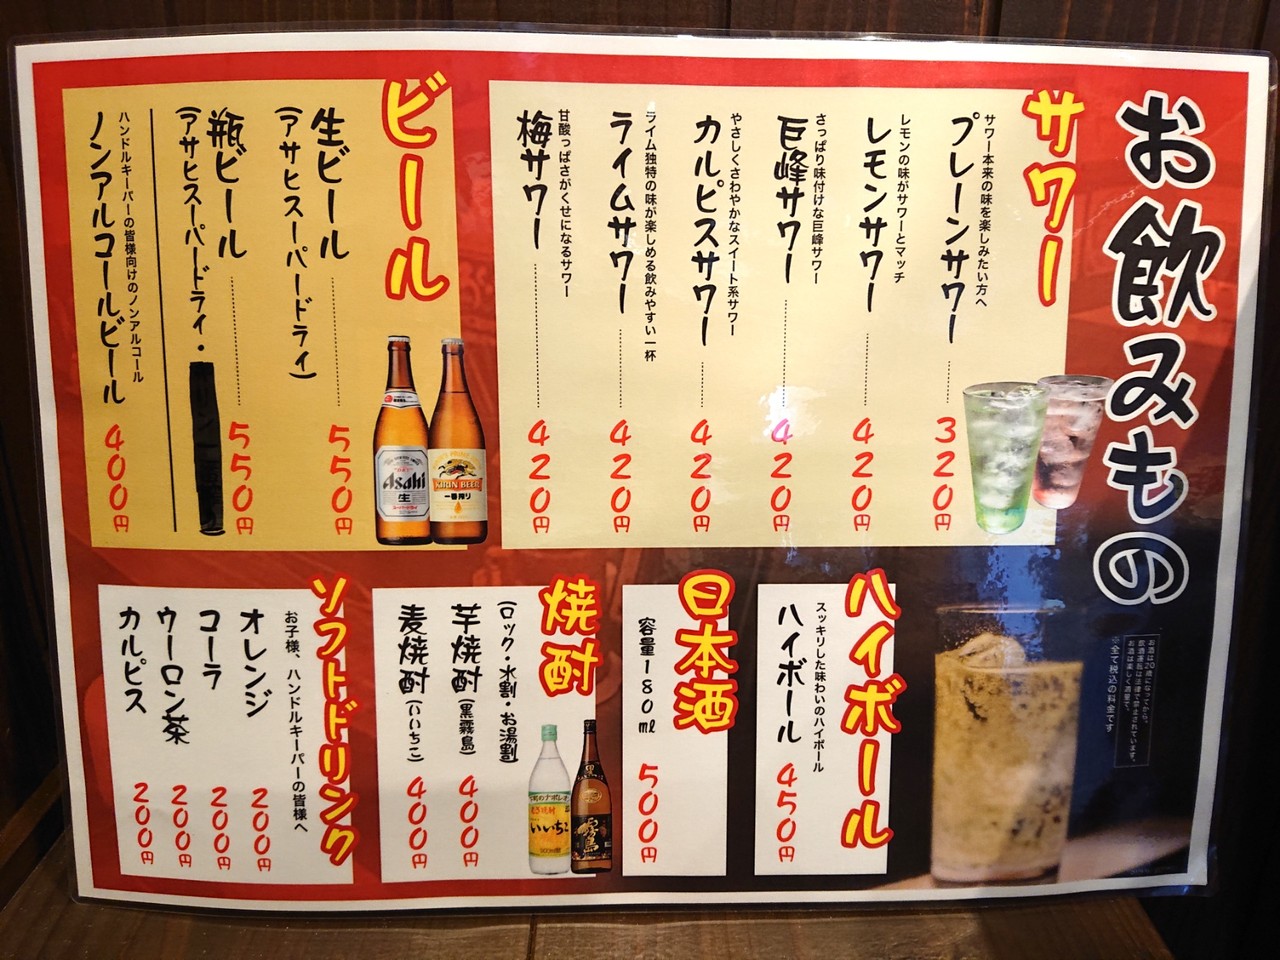 お飲みもの
お酒は20歳になってから。
飲酒運転は法律で禁止されています。
お酒は楽しく適量で。
※全て税込の料金です
サワー
サワー本来の味を楽しみたい方へ
プレーンサワー 320円
レモンの味がサワーとマッチ
レモンサワー 420円
さっぱり味付けな巨峰サワー
巨峰サワー 420円
やさしくさわやかなスイート系サワー
カルピスサワー 420円
ライム独特の味が楽しめる飲みやすい一杯
ライムサワー 420円
甘酸っぱさがくせになるサワー
梅サワー 420円
ビール
生ビール 550円
(アサヒスーパードライ)
瓶ビール 550円
(アサヒスーパードライ・
ハンドルキーパーの皆様向けのノンアルコール
ノンアルコールビール 400円
Asahi
生
KIRIN BEER
一番搾り
ハイボール
スッキリした味わいのハイボール
ハイボール 450円
日本酒
容量180ml 500円
焼酎
(ロック・水割・お湯割)
芋焼酎(黒霧島) 400円
麦焼酎(いいちこ) 400円
いいちこ
霧島
ソフトドリンク
お子様、ハンドルキーパーの皆様へ
オレンジ 200円
コーラ 200円
ウーロン茶 200円
カルピス 200円